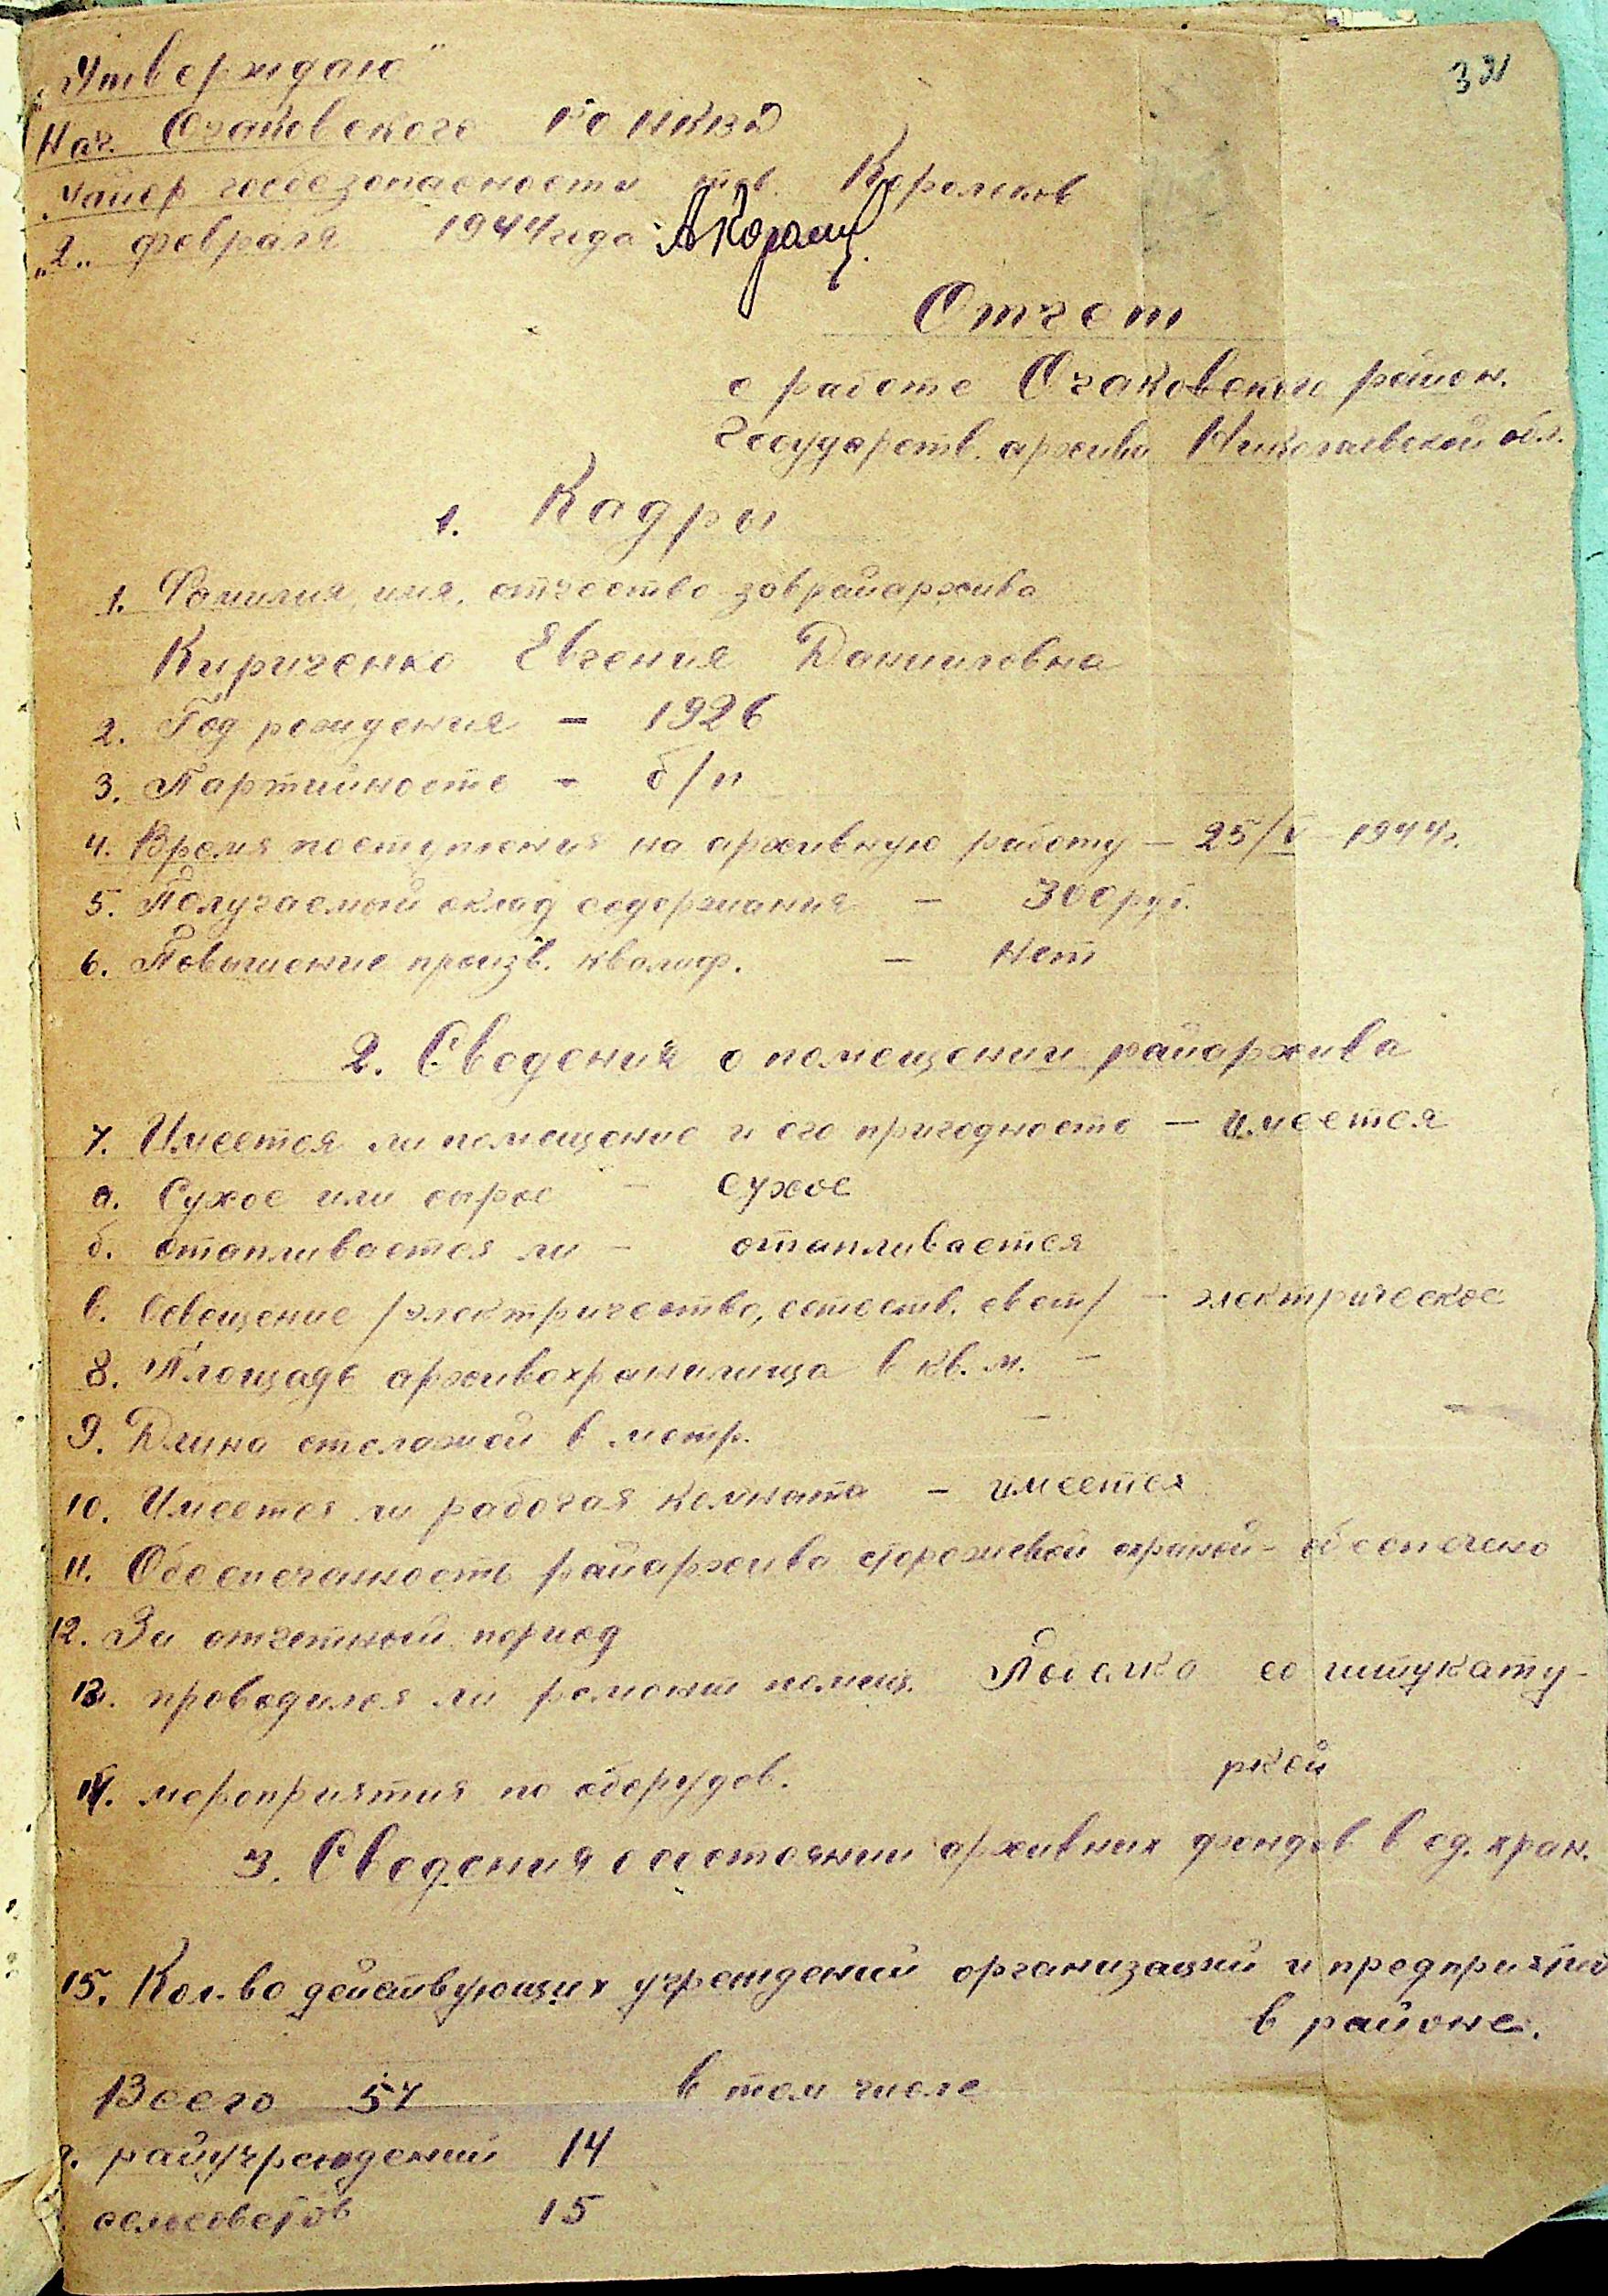 321
„Утверждаю"
Нач. Очаковского РО НКВД
Майор госбезопасности тов.
„2„ февраля 1944 года
Отчет
о работе Очаковского район.
Государств. архива Николаевской обл.
1. Кадры
1. Фамилия, имя, отчество заврайархива
Кириченко Евгения Данииловна
2. Год рождения – 1926
3. Партийность – б/п
4. Время поступления на архивную работу – 25/V – 1944г.
5. Получаемый оклад содержания – 300 руб.
6. Повышение произв. квалиф. – нет
2. Сведения о помещении райархива
7. Имеется ли помещение и его пригодность – имеется
а. Сухое или сырое – сухое
б. отапливается ли – отапливается
в. Освещение /электричество, естеств. свет/ – электрическое
8. Площадь архивохранилища в кв. м. –
9. Длина стелажей в метр. –
10. Имеется ли рабочая комната – имеется
11. Обеспеченность райархива сторожевой охраной – обеспечено
12. За отчетный период
13. проводился ли ремонт помещ. Побелка со штукату-
ркой
14. мероприятия по оборудов.
3. Сведения о состоянии архивних фондов в ед. хран.
15. Кол-во действующих учреждений организаций и предприятий
в районе.
Всего 57 в том числе
райучреждений 14
сельсоветов 15